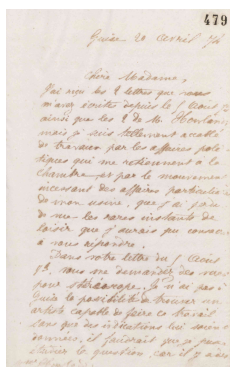 479
Guise 20 Avril 74
Chère Madame,
J'ai reçu les 2 lettres que vous
m'avez écrites depuis le
ainsi que les 2 de M.
mais je suis tellement accablé
de travaux par les affaires poli-
tiques qui me retiennent à la
chambre et par le mouvement
incessant des affaires particulières
de mon usine, que j'ai
de vue les rares instants de
loisir que j'aurais pu consacrer
à vous répondre.
Dans votre lettre du
vous me demandez des vues
pour stéréoscope. Je n'ai pas à
Guise la possibilité de trouver un
artiste capable de faire ce travail
sans que des indications lui soient
données, il faudrait que je puisse
étudier la question, car il y a